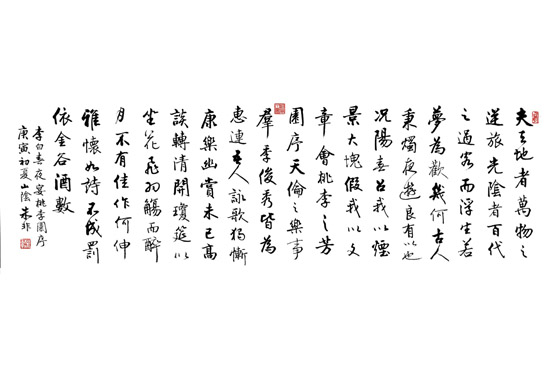 夫天地者萬物之
逆旅光陰者百代
之過客而浮生若
夢為歡幾何古人
秉燭夜遊良有以也
況陽春召我以煙
景大塊假我以文
章會桃李之芳
園序天倫之樂事
羣季俊秀皆為
惠連吾人詠歌獨慚
康樂幽賞未已高
談轉清開瓊筵以
坐花飛羽觴而醉
月不有佳作何伸
雅懷如詩不成罰
依金谷酒數
李白春夜宴桃李園序
庚寅初夏山陰朱非